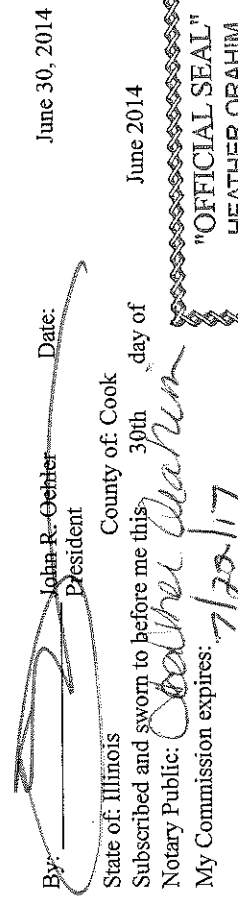 By: John R. Oehler Date: June 30, 2014
President
State of: Illinois County of: Cook
Subscribed and sworn to before me this 30th day of June 2014
Notary Public: Heather Orahim
My Commission expires: 7/22/17
"OFFICIAL SEAL"
HEATHER ORAHIM